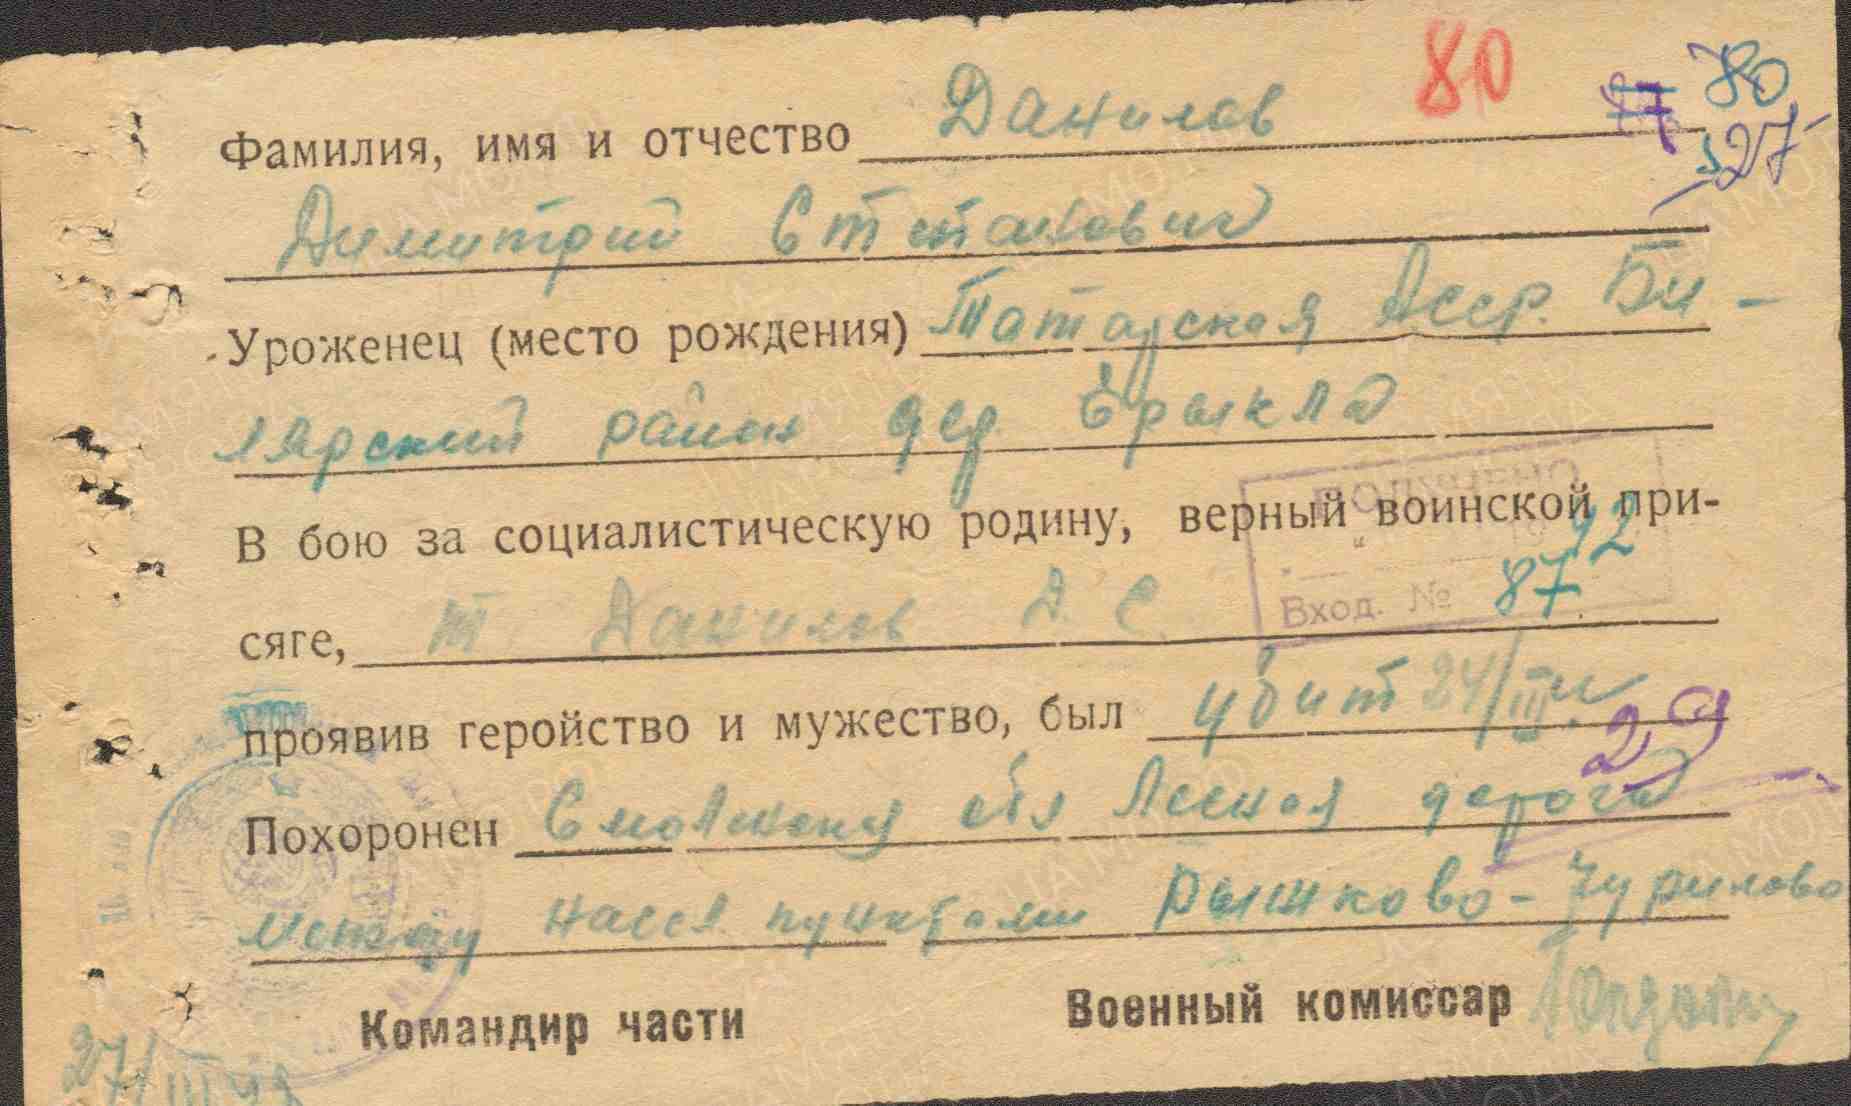 80
80
27
27
Фамилия, имя и отчество Данилов
Димитрий Степанович
Уроженец (место рождения) Татарская Асср. Би-
лярский район дер Ерыкла
ПОЛУЧЕНО
В бою за социалистическую родину, верный воинской при-
Вход. № 8792
сяге, т Данилов Д. С.
проявив геройство и мужество, был убит 24/III
29
Похоронен Смоленску обл Лесная дорога
между насел пунктами Рышково-Чурилово
Командир части Военный комиссар
27/III 42